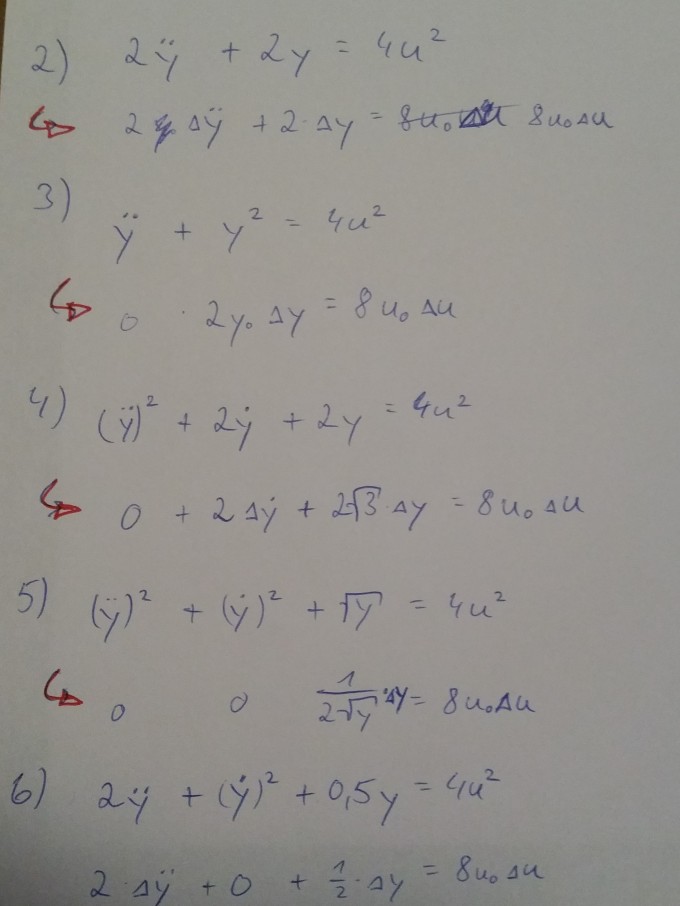 2) 2ÿ + 2y = 4u²
2 Δÿ + 2·Δy = 8u₀Δu 8u₀Δu
3)
ÿ + y² = 4u²
0 · 2y₀ Δy = 8u₀ Δu
4) (ÿ)² + 2ẏ + 2y = 4u²
0 + 2Δẏ + 2√3·Δy = 8u₀ Δu
5) (ÿ)² + (ẏ)² + √y = 4u²
0 0 1/(2√y) ·Δy = 8u₀Δu
6) 2ÿ + (ẏ)² + 0,5y = 4u²
2·Δÿ + 0 + 1/2·Δy = 8u₀Δu